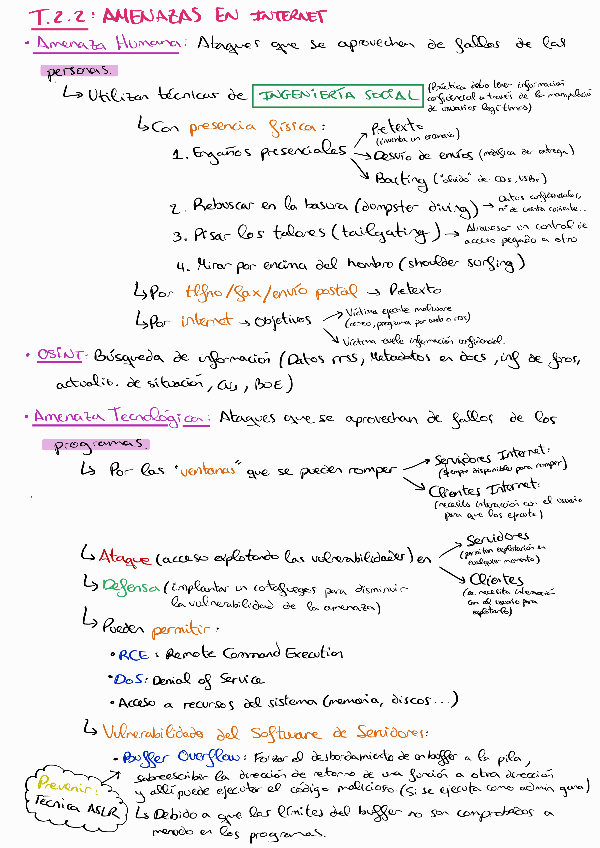 T.2.2: AMENAZAS EN INTERNET
• Amenaza Humana: Ataques que se aprovechan de fallos de las
personas.
↳ Utilizan técnicas de INGENIERÍA SOCIAL (Práctica debo tener información
confidencial a través de la manipulación
de usuarios legítimos)
↳ Con presencia física:
1. Engaños presenciales → Pretexto
(inventa un escenario)
→ Desvío de envíos (modifica de entrega)
→ Baiting ("olvido" de CDs, USBs)
2. Rebuscar en la basura (dumpster diving) → Datos confidenciales,
nº de cuenta corriente...
3. Pisar los talones (tailgating) → Atravesar un control de
acceso pegado a otro
4. Mirar por encima del hombro (shoulder surfing)
↳ Por tlfno/fax/envío postal → Pretexto
↳ Por internet → Objetivos → Víctima ejecute malware
(correo, programa por web o ...)
→ Víctima revele información confidencial.
• OSINT: Búsqueda de información (Datos rrss, Metadatos en docs, inf de foros,
actualiz. de situación, CVs, BOE)
• Amenaza Tecnológica: Ataques que se aprovechan de fallos de los
programas.
↳ Por las "ventanas" que se pueden romper → Servidores Internet:
(siempre disponibles para romper)
→ Clientes Internet:
(necesita interacción con el usuario
para que los ejecute)
↳ Ataque (acceso explotando las vulnerabilidades) en → Servidores
(permiten explotación en
cualquier momento)
→ Clientes
(se necesita interacción
con el usuario para
explotarlo)
↳ Defensa (implantar un cortafuegos para disminuir
la vulnerabilidad de la amenaza)
↳ Pueden permitir:
• RCE: Remote Command Execution
• DoS: Denial of Service
• Acceso a recursos del sistema (memoria, discos...)
↳ Vulnerabilidades del Software de Servidores:
• Buffer Overflow: Forzar el desbordamiento de un buffer a la pila,
sobreescribir la dirección de retorno de una función a otra dirección
y allí puede ejecutar el código malicioso (Si se ejecuta como admin gana)
Prevenir:
Técnica ASLR
↳ Debido a que los límites del buffer no son comprobados a
menudo en los programas.